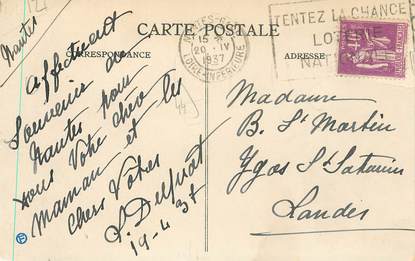 Nantes
CARTE POSTALE
CORRESPONDANCE
ADRESSE
NANTES-GARE
15 H
20 - IV
1937
LOIRE-INFERIEURE
TENTEZ LA CHANCE
LOTERIE
NATIONALE
Affectueux
Souvenirs de
Nantes pour
vous Votre chère
Maman et les
chers Vôtres
19-4-37
Madame
B. St Martin
Ygos St Saturnin
Landes